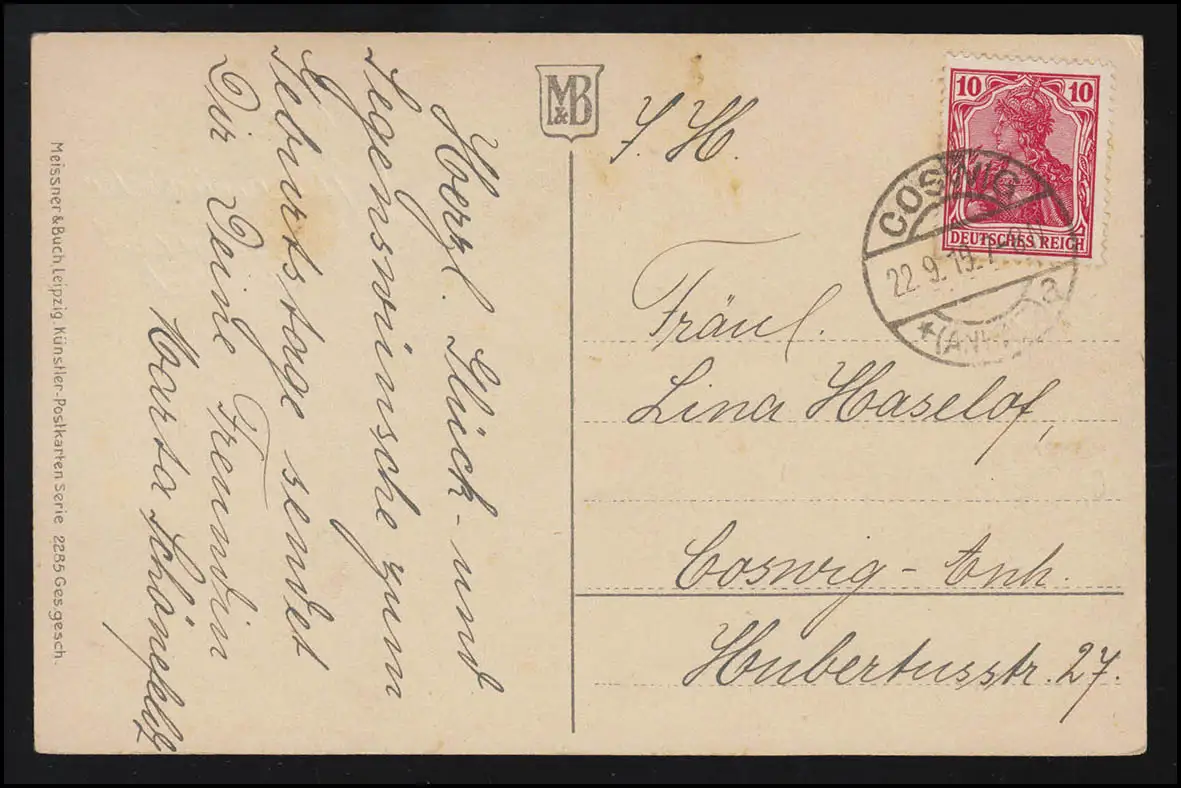 Herzl. Glück- und
Segenswünsche zum
Geburtstage sendet
Dir Deine Freundin
Marta
M&B
10 10
DEUTSCHES REICH
COSWIG
22. 9. 19.
a
Fräul.
Lina Haselof,
Coswig - Anh.
Hubertusstr. 27.
Meissner & Buch, Leipzig. Künstler-Postkarten Serie 2285 Ges. gesch.